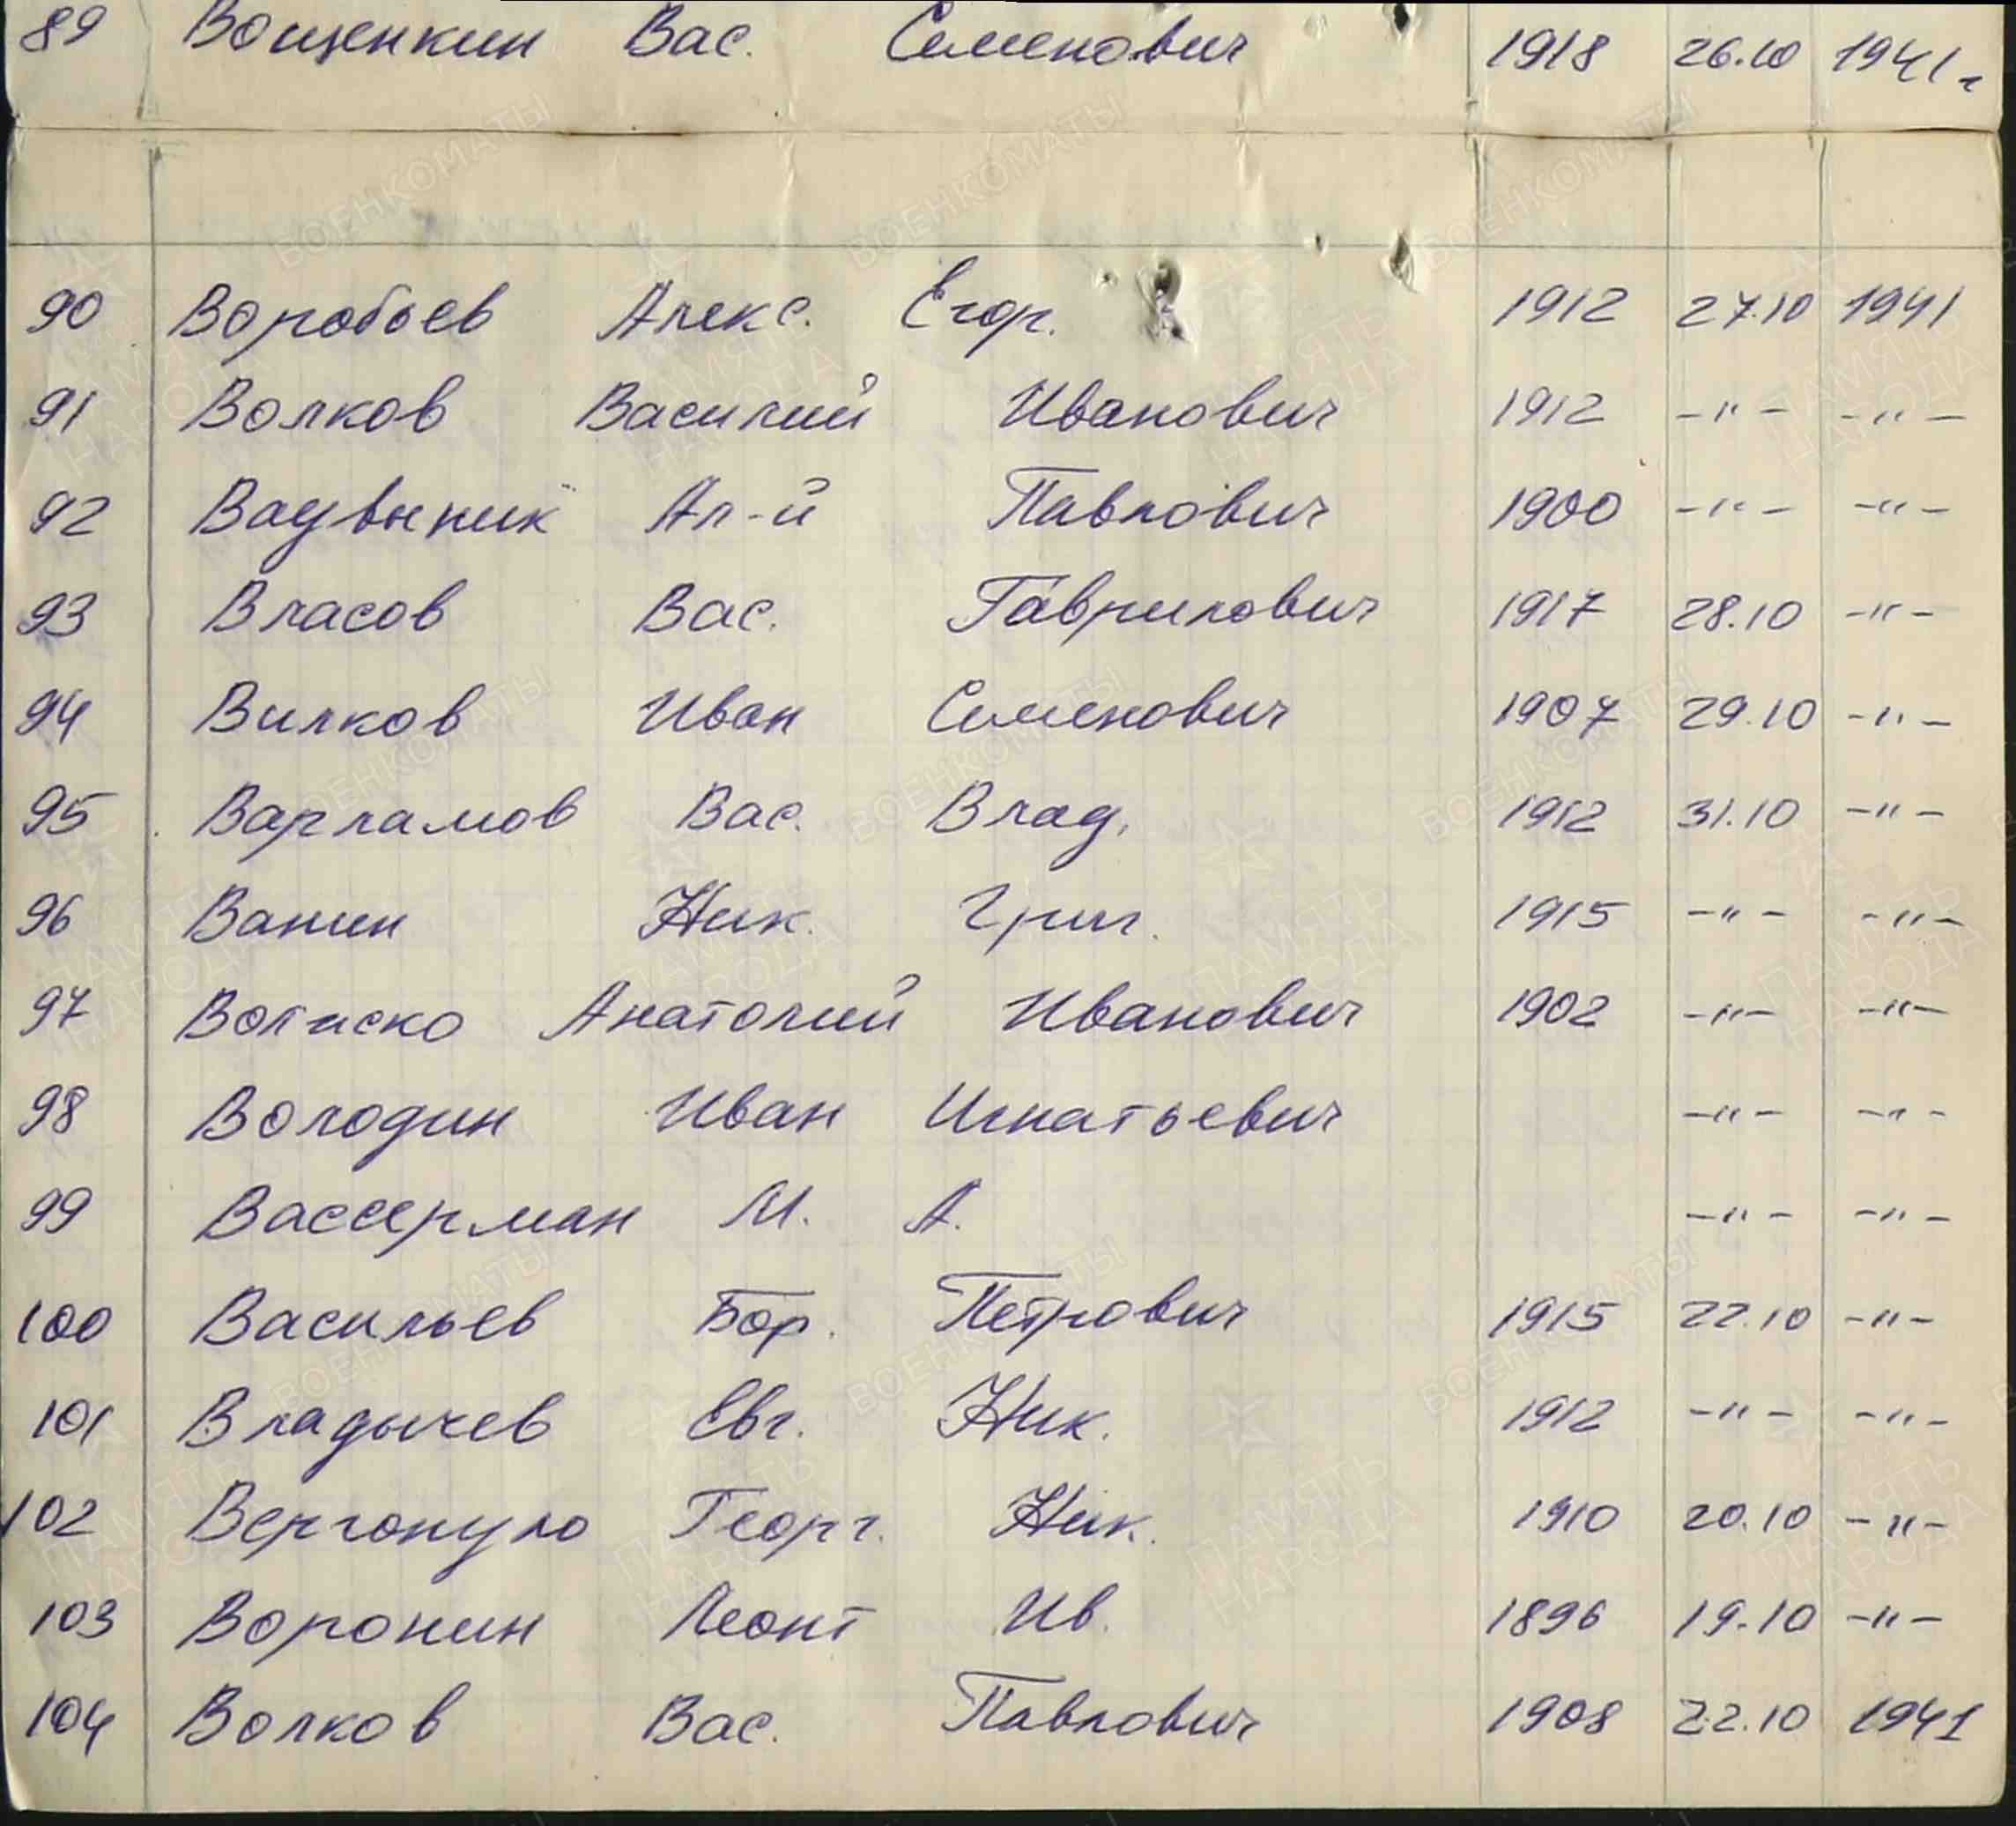 89 Вощенкин Вас. Семенович 1918 26.10 1941 г
90 Воробьев Алекс. Егор. 1912 27.10 1941
91 Волков Василий Иванович 1912 -"- -"-
92 Ал-й Павлович 1900 -"- -"-
93 Власов Вас. Гаврилович 1917 28.10 -"-
94 Вилков Иван Семенович 1907 29.10 -"-
95 Варламов Вас. Влад. 1912 31.10 -"-
96 Ванин Ник. Григ. 1915 -"- -"-
97 Анатолий Иванович 1902 -"- -"-
98 Володин Иван Игнатьевич -"- -"-
99 Вассерман М. А. -"- -"-
100 Васильев Бор. Петрович 1915 22.10 -"-
101 Владычев Евг. Ник. 1912 -"- -"-
102 Вергопуло Георг. Ник. 1910 20.10 -"-
103 Воронин Леонт Ив. 1896 19.10 -"-
104 Волков Вас. Павлович 1908 22.10 1941